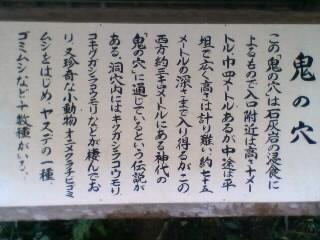 鬼の穴
この「鬼の穴」は石灰岩の浸食に
よるもので入口附近は高さ十メー
トル、巾四メートルあるが中途は平
坦で広く高さは計り難い約七五
メートルの深さまで入り得るがこの
西方約三キロメートルにある神代の
「鬼の穴」に通じているという伝説が
ある。洞穴内にはキクガシラコウモリ、
コキクガシラコウモリなどが棲んでお
り、又珍奇な小動物オニメクラチビゴミ
ムシをはじめ、ヤスデの一種、
ゴミムシなど十数種がいる。